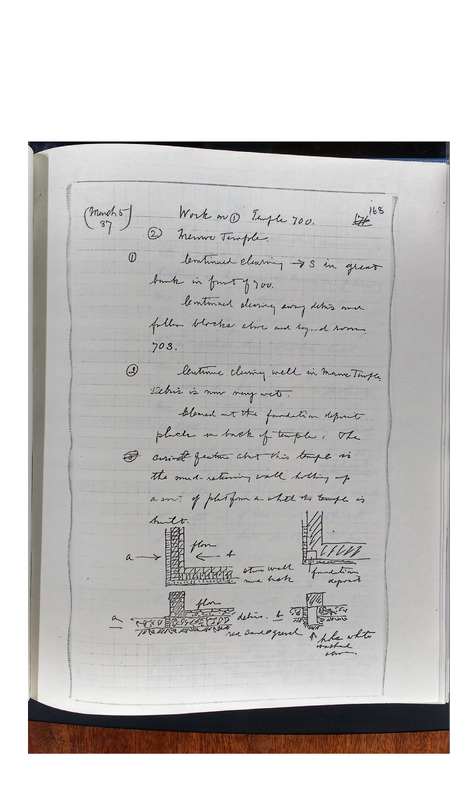 (March 5
37)
Work on ① Temple 700.
168
② Meroe Temple.
① Continued clearing → S in great
bank in front of 700.
Continued clearing away debris and
fallen blocks above and beyond room
703.
② Continue clearing well in Meroe Temple.
Debris is now very wet.
Cleared out the foundation deposit
place in back of temple. The
curious feature abt this temple is
the mud-retaining wall holding up
a sort of platform on which the temple is
built.
floor
a → ← b
stone wall
mud brick
foundation
deposit
floor
a
debris.
red sand & gravel
b
hole white
washed
above.